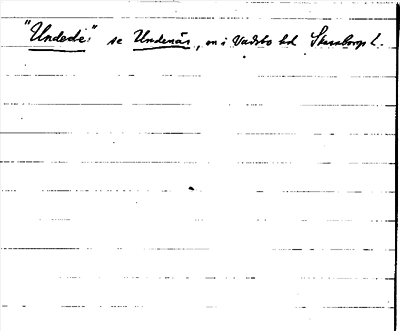 "Undede" se Undenäs, sn i Vadsbo hd Skaraborgs l.